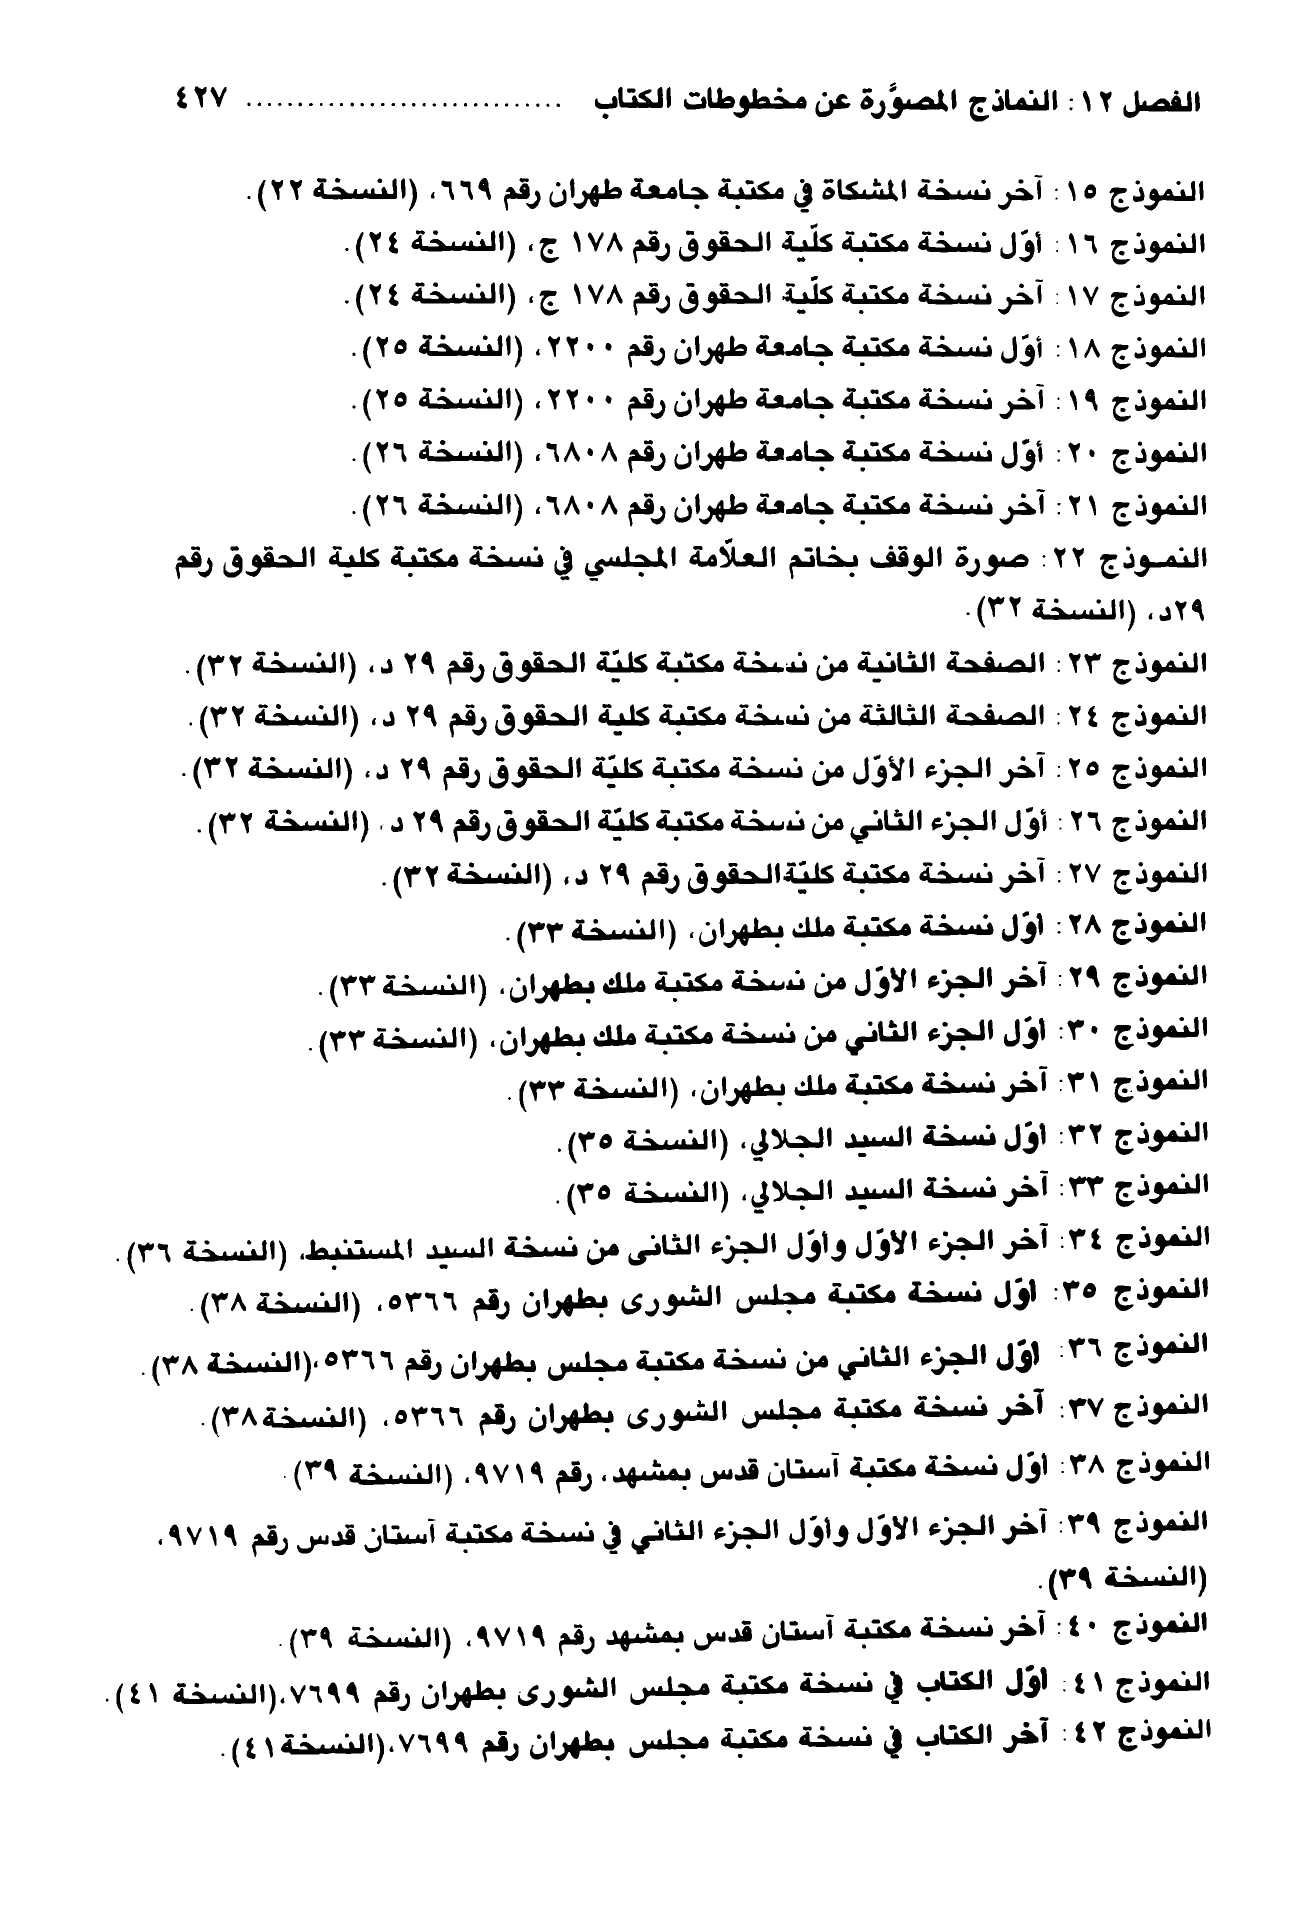 الفصل ١٢: النماذج المصوَّرة عن مخطوطات الكتاب ............................... ٤٢٧
النموذج ١٥: آخر نسخة المشكاة في مكتبة جامعة طهران رقم ٦٦٩، (النسخة ٢٢).
النموذج ١٦: أوّل نسخة مكتبة كلّية الحقوق رقم ١٧٨ ج، (النسخة ٢٤).
النموذج ١٧: آخر نسخة مكتبة كلّية الحقوق رقم ١٧٨ ج، (النسخة ٢٤).
النموذج ١٨: أوّل نسخة مكتبة جامعة طهران رقم ٢٢٠٠، (النسخة ٢٥).
النموذج ١٩: آخر نسخة مكتبة جامعة طهران رقم ٢٢٠٠، (النسخة ٢٥).
النموذج ٢٠: أوّل نسخة مكتبة جامعة طهران رقم ٦٨٠٨، (النسخة ٢٦).
النموذج ٢١: آخر نسخة مكتبة جامعة طهران رقم ٦٨٠٨، (النسخة ٢٦).
النمـوذج ٢٢: صورة الوقف بخاتم العلّامة المجلسي في نسخة مكتبة كلية الحقوق رقم
٢٩د، (النسخة ٣٢).
النموذج ٢٣: الصفحة الثانية من نسخة مكتبة كليّة الحقوق رقم ٢٩ د، (النسخة ٣٢).
النموذج ٢٤: الصفحة الثالثة من نسخة مكتبة كلية الحقوق رقم ٢٩ د، (النسخة ٣٢).
النموذج ٢٥: آخر الجزء الأوّل من نسخة مكتبة كليّة الحقوق رقم ٢٩ د، (النسخة ٣٢).
النموذج ٢٦: أوّل الجزء الثاني من نسخة مكتبة كليّة الحقوق رقم ٢٩ د، (النسخة ٣٢).
النموذج ٢٧: آخر نسخة مكتبة كليّةالحقوق رقم ٢٩ د، (النسخة ٣٢).
النموذج ٢٨: أوّل نسخة مكتبة ملك بطهران، (النسخة ٣٣).
النموذج ٢٩: آخر الجزء الأوّل من نسخة مكتبة ملك بطهران، (النسخة ٣٣).
النموذج ٣٠: أوّل الجزء الثاني من نسخة مكتبة ملك بطهران، (النسخة ٣٣).
النموذج ٣١: آخر نسخة مكتبة ملك بطهران، (النسخة ٣٣).
النموذج ٣٢: أوّل نسخة السيد الجلالي، (النسخة ٣٥).
النموذج ٣٣: آخر نسخة السيد الجلالي، (النسخة ٣٥).
النموذج ٣٤: آخر الجزء الأوّل وأوّل الجزء الثانى من نسخة السيد المستنبط، (النسخة ٣٦).
النموذج ٣٥: أوّل نسخة مكتبة مجلس الشورى بطهران رقم ٥٣٦٦، (النسخة ٣٨).
النموذج ٣٦: أوّل الجزء الثاني من نسخة مكتبة مجلس بطهران رقم ٥٣٦٦،(النسخة ٣٨).
النموذج ٣٧: آخر نسخة مكتبة مجلس الشورى بطهران رقم ٥٣٦٦، (النسخة٣٨).
النموذج ٣٨: أوّل نسخة مكتبة آستان قدس بمشهد، رقم ٩٧١٩، (النسخة ٣٩).
النموذج ٣٩: آخر الجزء الأوّل وأوّل الجزء الثاني في نسخة مكتبة آستان قدس رقم ٩٧١٩،
(النسخة ٣٩).
النموذج ٤٠: آخر نسخة مكتبة آستان قدس بمشهد رقم ٩٧١٩، (النسخة ٣٩).
النموذج ٤١: أوّل الكتاب في نسخة مكتبة مجلس الشورى بطهران رقم ٧٦٩٩،(النسخة ٤١).
النموذج ٤٢: آخر الكتاب في نسخة مكتبة مجلس بطهران رقم ٧٦٩٩،(النسخة٤١).